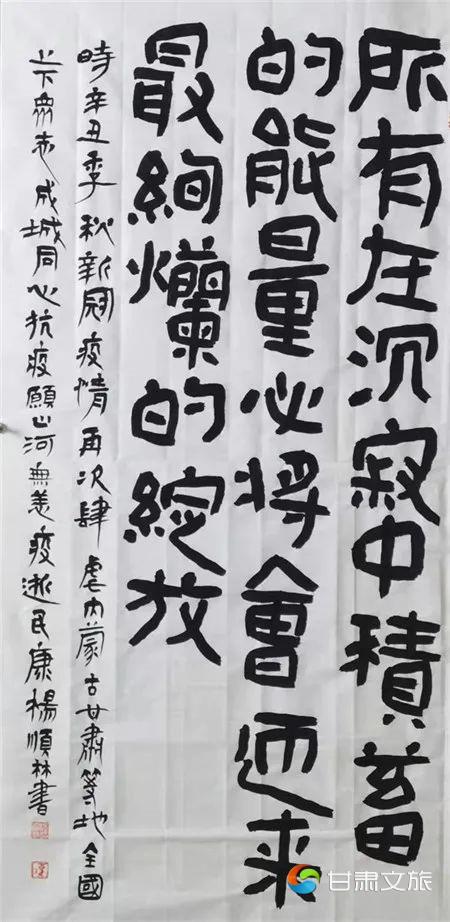 所有在沉寂中積蓄
的能量必将會迎来
最絢爛的綻放
時辛丑季秋新冠疫情再次肆虐内蒙古甘肅等地全國
上下衆志成城同心抗疫願山河無恙疫逝民康楊順林書
甘肃文旅